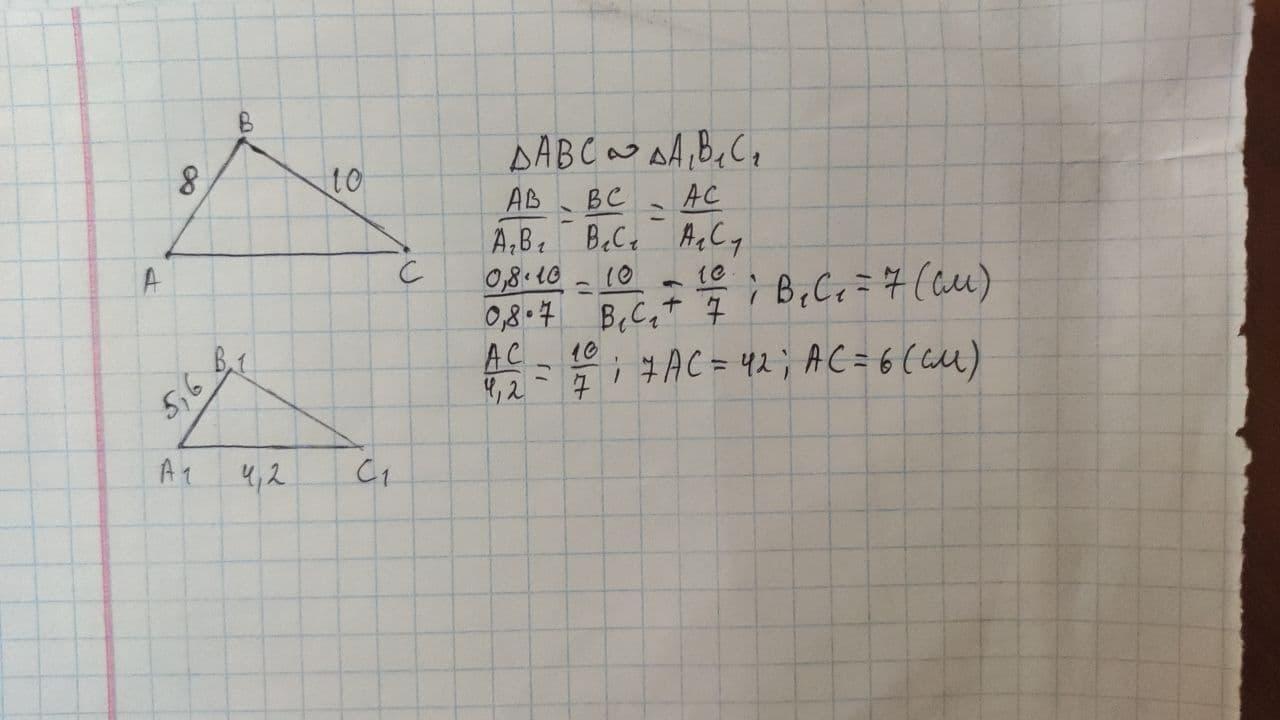 B
8
10
A
C
B1
5,6
A1
4,2
C1
ΔABC ∾ ΔA₁B₁C₁
AB/A₁B₁ = BC/B₁C₁ = AC/A₁C₁
0,8·10/0,8·7 = 10/B₁C₁ = 10/7 ; B₁C₁ = 7 (см)
AC/4,2 = 10/7 ; 7AC = 42 ; AC = 6 (см)